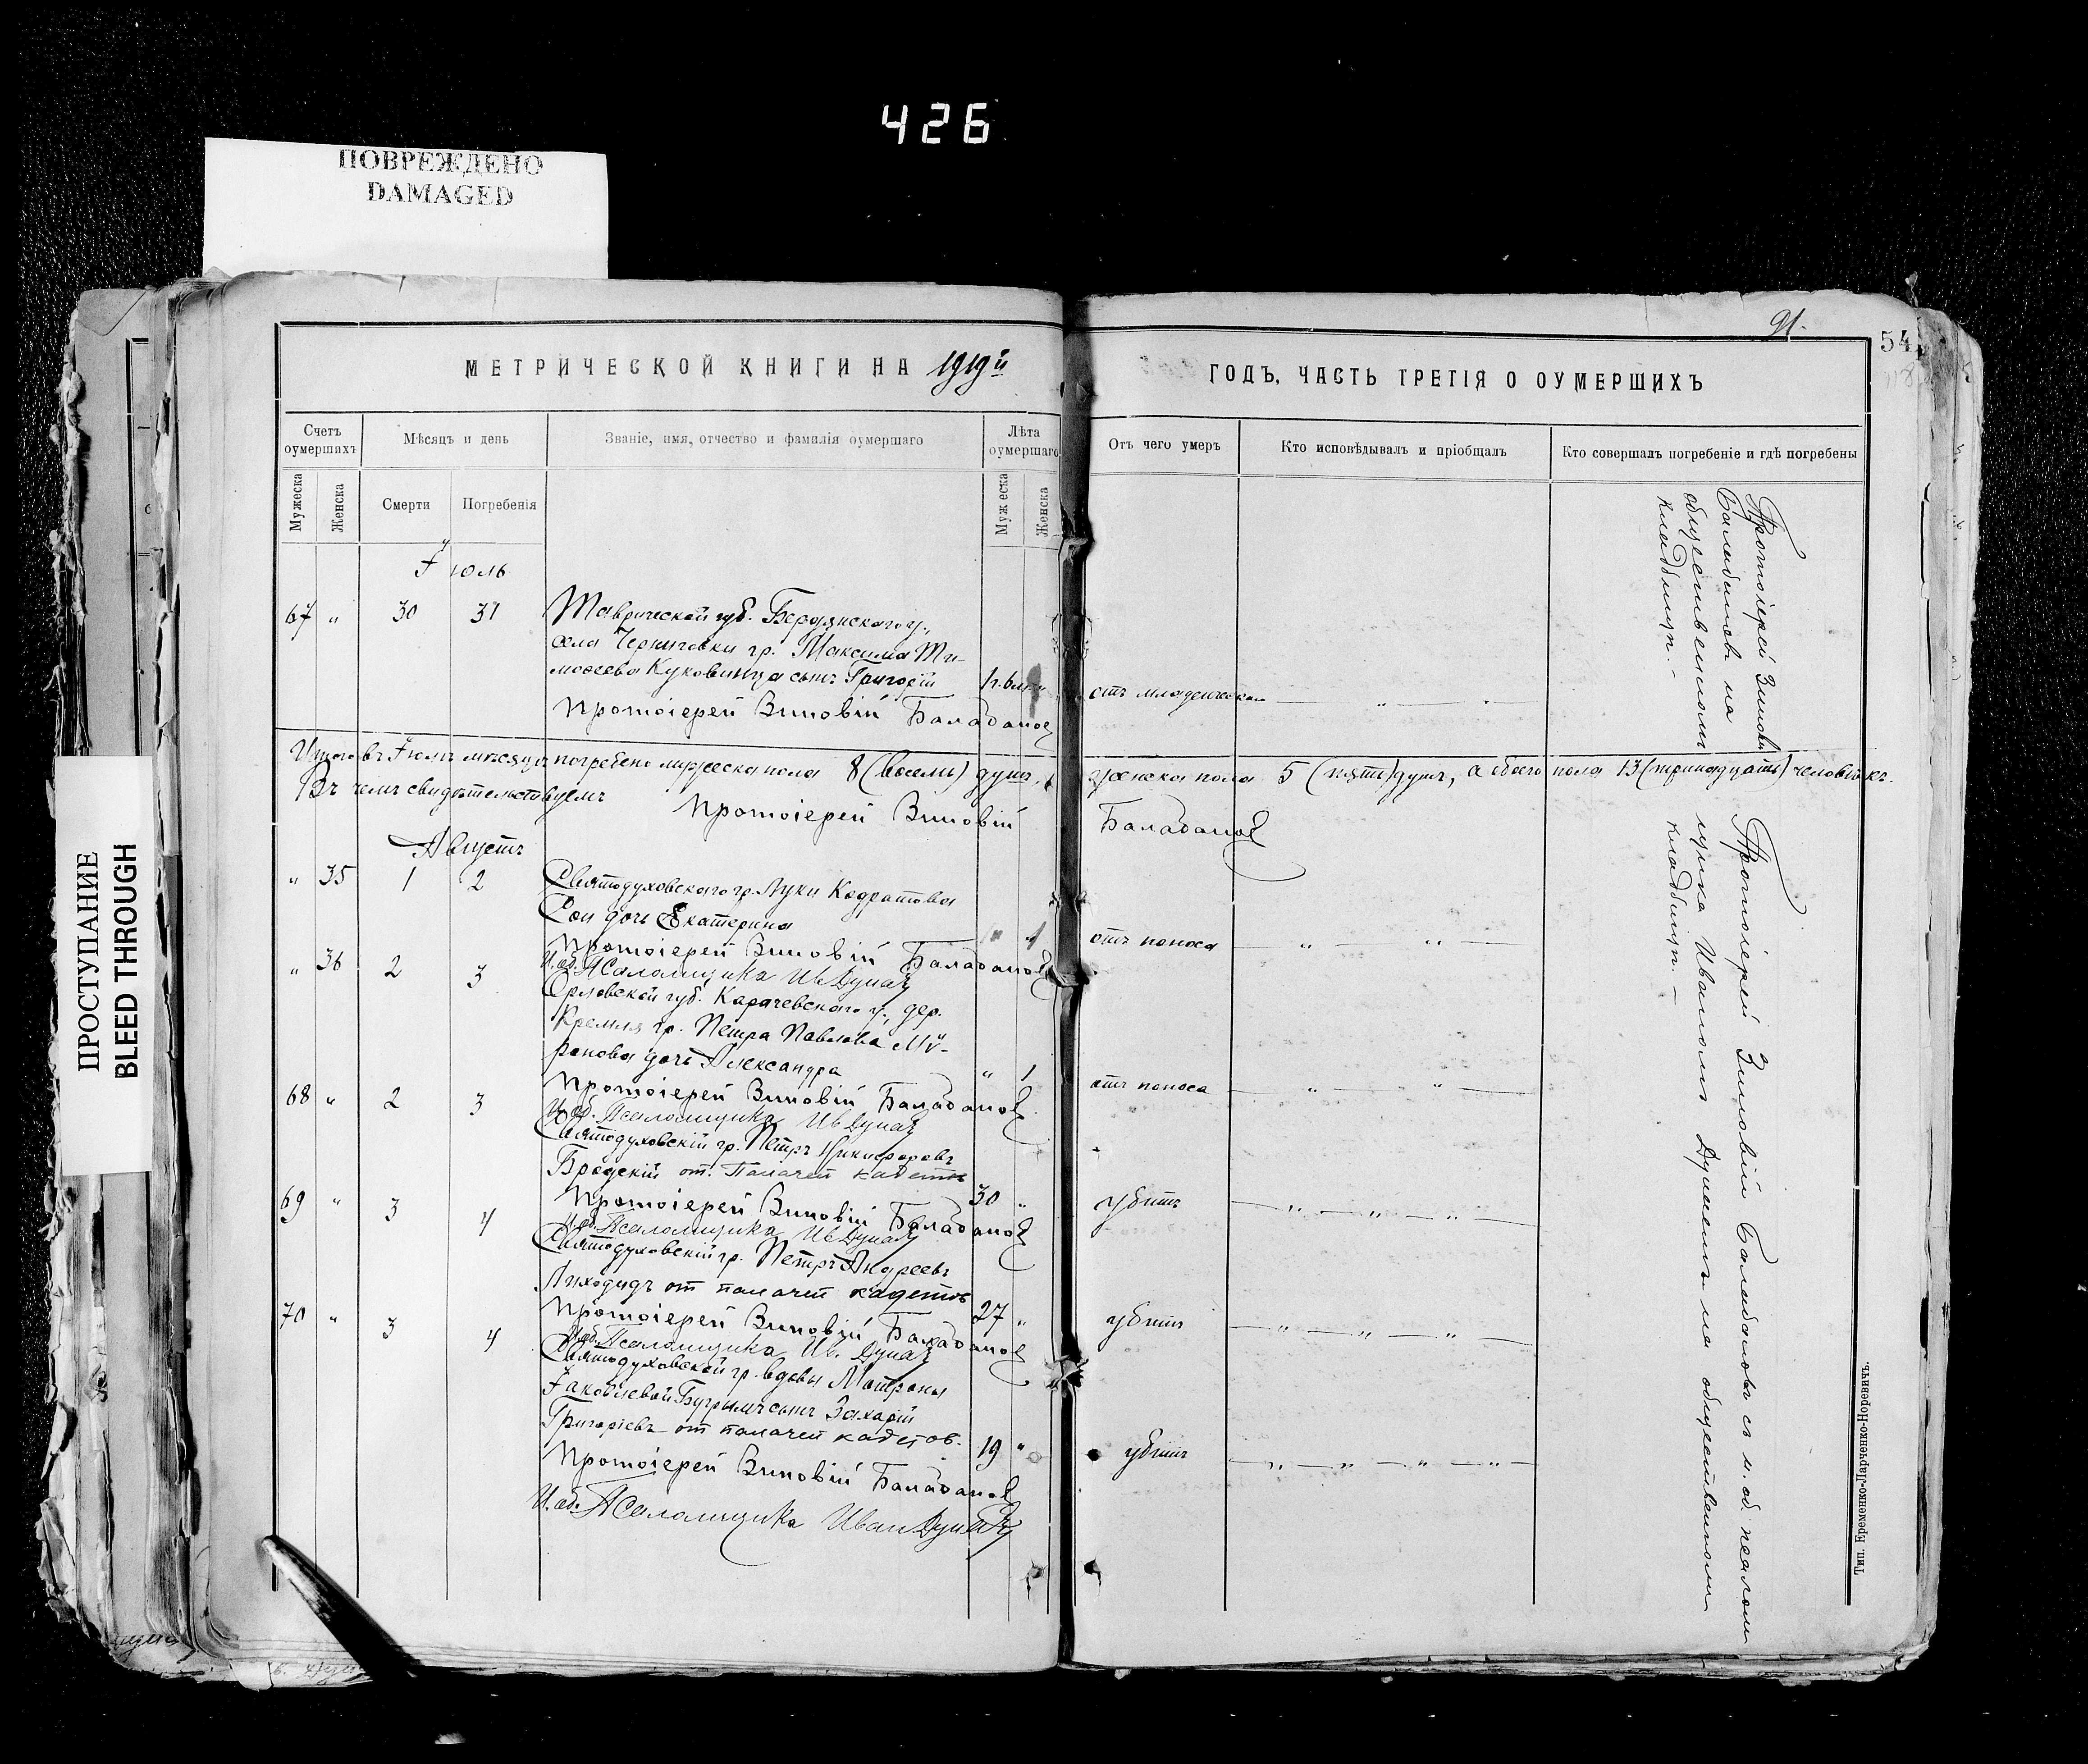 426
ПОВРЕЖДЕНО
DAMAGED
ПРОСТУПАНИЕ
BLEED THROUGH
91.
54
МЕТРИЧЕСКОЙ КНИГИ НА 1919й
ГОДЪ, ЧАСТЬ ТРЕТІЯ О ОУМЕРШИХЪ
Счетъ оумершихъ
Мѣсяцъ и день
Званіе, имя, отчество и фамилія оумершаго
Лѣта оумершаго
Отъ чего умеръ
Кто исповѣдывалъ и пріобщалъ
Кто совершалъ погребеніе и гдѣ погребены
Мужеска
Женска
Смерти
Погребенія
Мужеска
Женска
Іюль
67 " 30 31 Таврической губ. Бердянскаго у.,
села Черниговки гр. Максима Ти-
моѳеева Куковинца сынъ Григорій
отъ младенческой
Протоіерей Зиновій Баладанов
Протоіерей Зиновій
на
общественномъ
кладбищѣ.
Итого въ Іюлѣ мѣсяцѣ погребено мужеска пола 8 (восемь) душъ, женска пола 5 (пять) душъ, а обоего пола 13 (тринадцать) человѣкъ.
Въ чемъ свидѣтельствуемъ
Протоіерей Зиновій Баладанов
Августъ
" 35 1 2 Святодуховскаго гр. Луки Кодратова
дочь Екатерина
" 1 отъ поноса
Протоіерей Зиновій Баладанов
И. об. Псаломщика Ив Дунай
" 36 2 3 Орловской губ. Карачевскаго у., дер.
Кремля гр. Петра Павлова Ми-
ронова дочь Александра
" 1 отъ поноса
Протоіерей Зиновій Баладанов
И. об. Псаломщика Ив Дунай
68 " 2 3 Святодуховскій гр. Петръ Никифоровъ
Бродскій от. Палачей кадетов
30 " убитъ
Протоіерей Зиновій Баладанов
И. об. Псаломщика Ив Дунай
69 " 3 4 Святодуховскій гр. Петръ Андреевъ
Лиходидъ от палачей кадетов
27 " убитъ
Протоіерей Зиновій Баладанов
И. об. Псаломщика Ив. Дунай
70 " 3 4 Святодуховской гр. вдовы Матроны
Іаковлевой сынъ Захарій
Григоріевъ от палачей кадетов.
19 " убитъ
Протоіерей Зиновій Баладанов
И. об. Псаломщика Иван Дунай
Протоіерей Зиновій Баладановъ съ и. об. псалом-
щика Иваномъ Дунаемъ на общественномъ
кладбищѣ.
Тип. Еременко-Ларченко-Норевичъ.